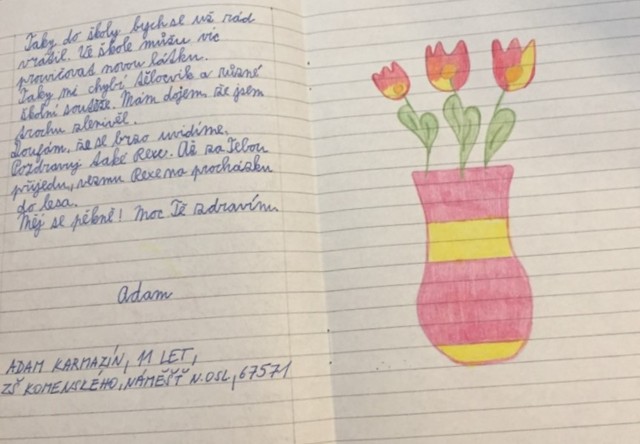 Taky do školy bych se už rád
vrátil. Ve škole můžu víc
provičovat novou látku.
Taky mě chybí tělocvik a různé
školní soutěže. Mám dojem, že jsem
trochu zlenivěl.
Doufám, že se brzo uvidíme.
Pozdravuj také Rexe. Až za Tebou
přijedu, vezmu Rexe na procházku
do lesa.
Měj se pěkně! Moc Tě zdravím
Adam
ADAM KARMAZÍN, 11 LET,
ZŠ KOMENSKÉHO, NÁMĚŠŤ N.OSL, 67571